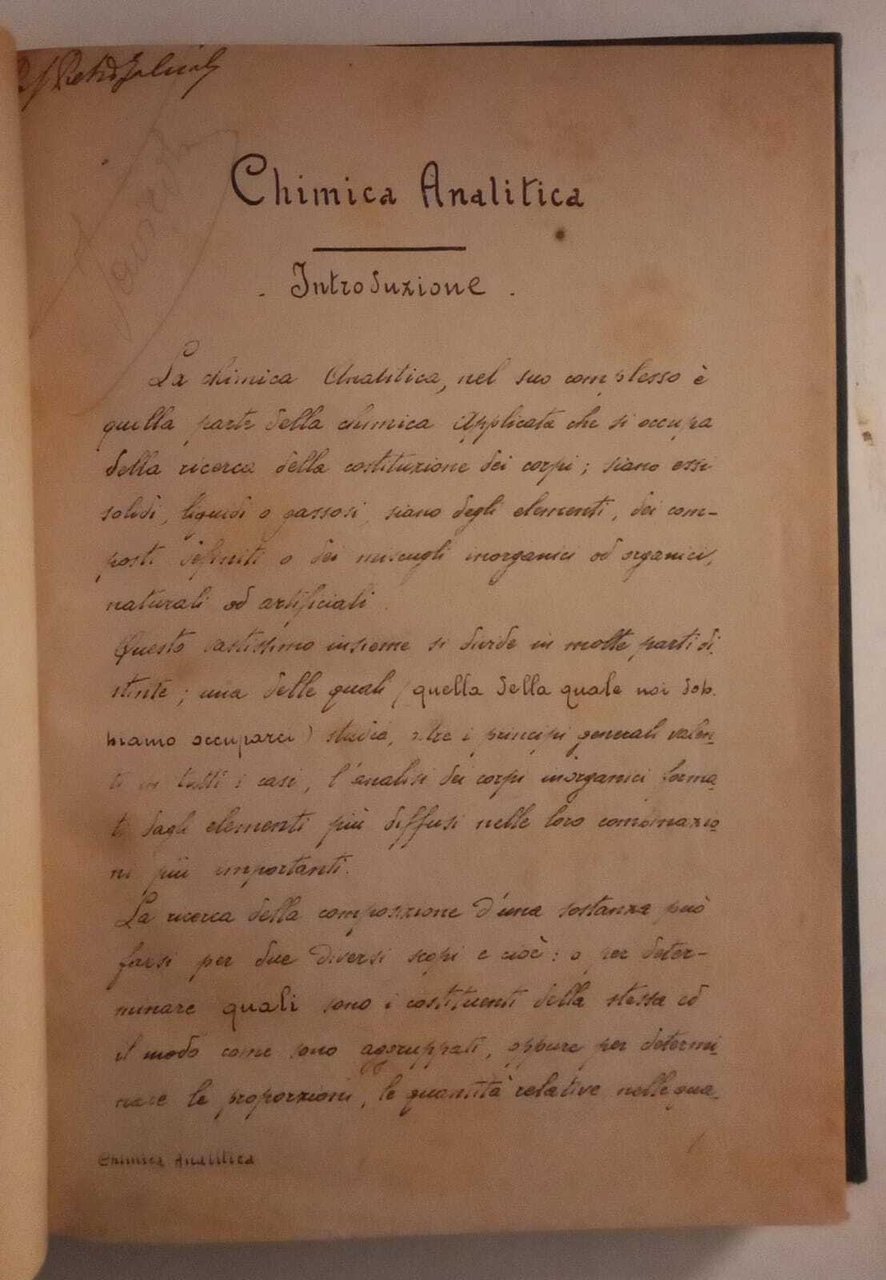 Chimica Analitica
Introduzione .
La chimica Analitica, nel suo complesso è
quella parte della chimica Applicata che si occupa
della ricerca della costituzione dei corpi; siano essi
solidi, liquidi o gassosi, siano degli elementi, dei com-
posti definiti o dei miscugli inorganici od organici,
naturali od artificiali.
Questo vastissimo insieme si divide in molte parti di-
stinte; una delle quali (quella della quale noi dob-
biamo occuparci) studia, oltre i principi generali valen-
ti in tutti i casi, l'analisi dei corpi inorganici forma-
ti dagli elementi più diffusi nelle loro combinazio-
ni più importanti.
La ricerca della composizione d'una sostanza può
farsi per due diversi scopi e cioè: o per deter-
minare quali sono i costituenti della stessa ed
il modo come sono aggruppati, oppure per determi-
nare le proporzioni, le quantità relative nelle qua-
Chimica Analitica
1